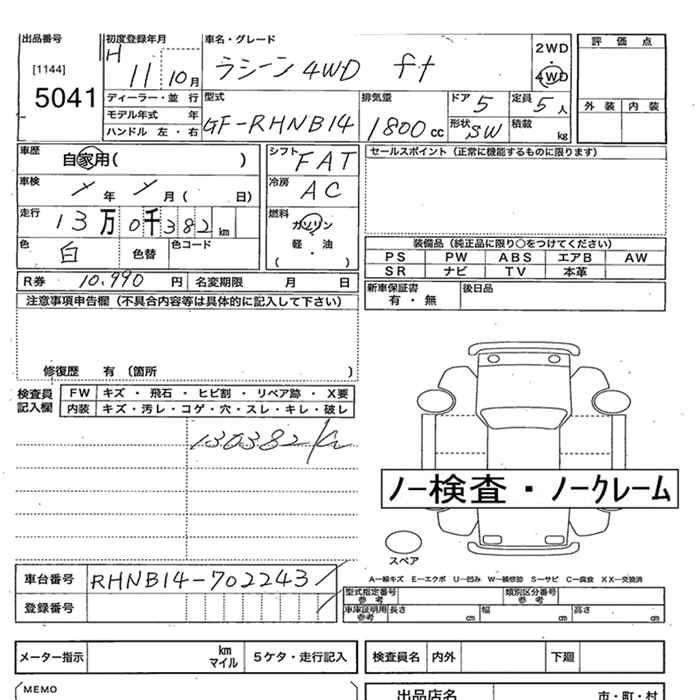 出品番号
[1144]
5041
初度登録年月
H 11 10月
ディーラー・並行
モデル年式 年
ハンドル 左・右
車名・グレード
ラシーン 4WD ft
2WD
4WD
型式
GF-RHNB14
排気量
1800 cc
ドア 5
形状 SW
定員 5人
積載 kg
評価点
外装 内装
車歴 自家用( )
車検 年 月( 日)
走行 13万0千382 km
色 白 色替 色コード
シフト FAT
冷房 AC
燃料 ガソリン
軽・油
( )
セールスポイント(正常に機能するものに限ります)
装備品(純正品に限り○をつけてください)
PS PW ABS エアB AW
SR ナビ TV 本革
R券 10,990 円 名変期限 月 日
新車保証書
有・無
後日品
注意事項申告欄(不具合内容等は具体的に記入して下さい)
修復歴 有(箇所 )
検査員
記入欄
FW キズ・飛石・ヒビ割・リペア跡・X要
内装 キズ・汚レ・コゲ・穴・スレ・キレ・破レ
130382
ノー検査・ノークレーム
スペア
車台番号 RHNB14-702243
登録番号
A―線キズ E―エクボ U―凹み W―補修跡 S―サビ C―腐食 XX―交換済
型式指定番号
参考
類別区分番号
参考
車庫証明用
参考
長さ cm 幅 cm 高さ cm
メーター指示 km
マイル
5ケタ・走行記入
検査員名 内外 下廻
MEMO
出品店名 市・町・村